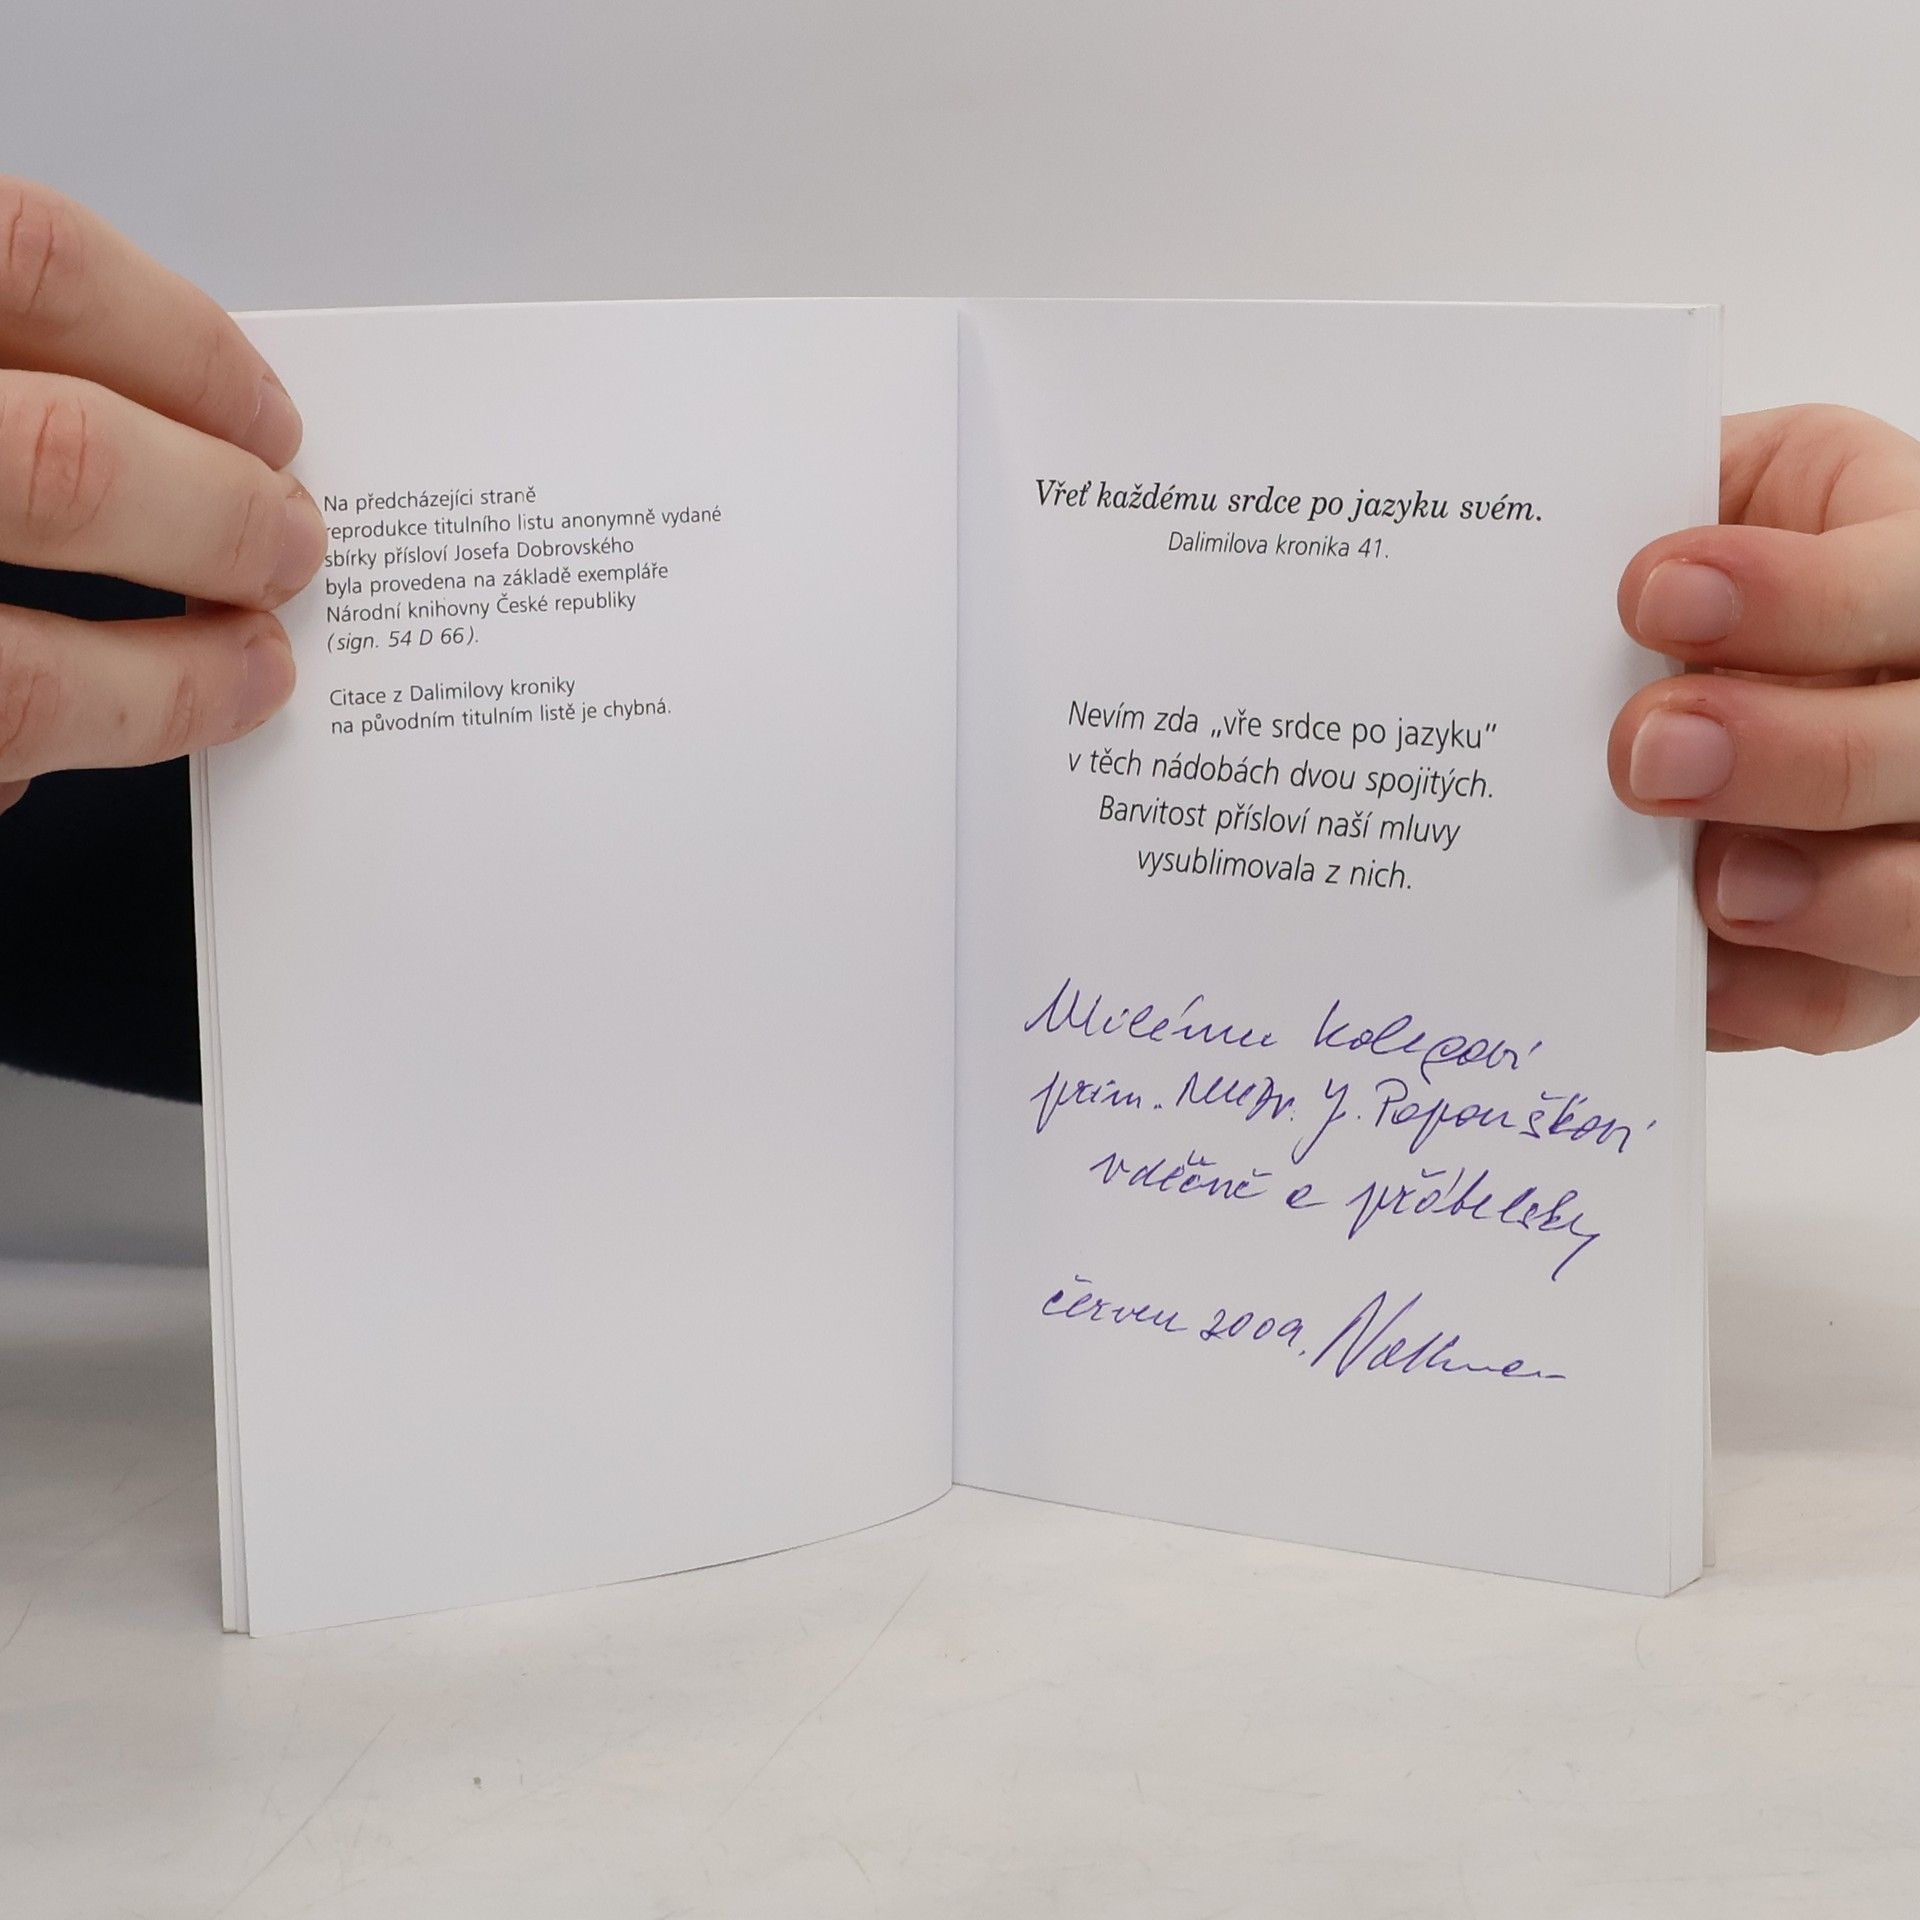 Na předcházejíci straně
reprodukce titulního listu anonymně vydané
sbírky přísloví Josefa Dobrovského
byla provedena na základě exempláře
Národní knihovny České republiky
(sign. 54 D 66).
Citace z Dalimilovy kroniky
na původním titulním listě je chybná.
Vřeť každému srdce po jazyku svém.
Dalimilova kronika 41.
Nevím zda „vře srdce po jazyku“
v těch nádobách dvou spojitých.
Barvitost přísloví naší mluvy
vysublimovala z nich.
Milému kolegovi
prim. MUDr. J. Papouškovi
vděčně a přátelsky
červen 2009.